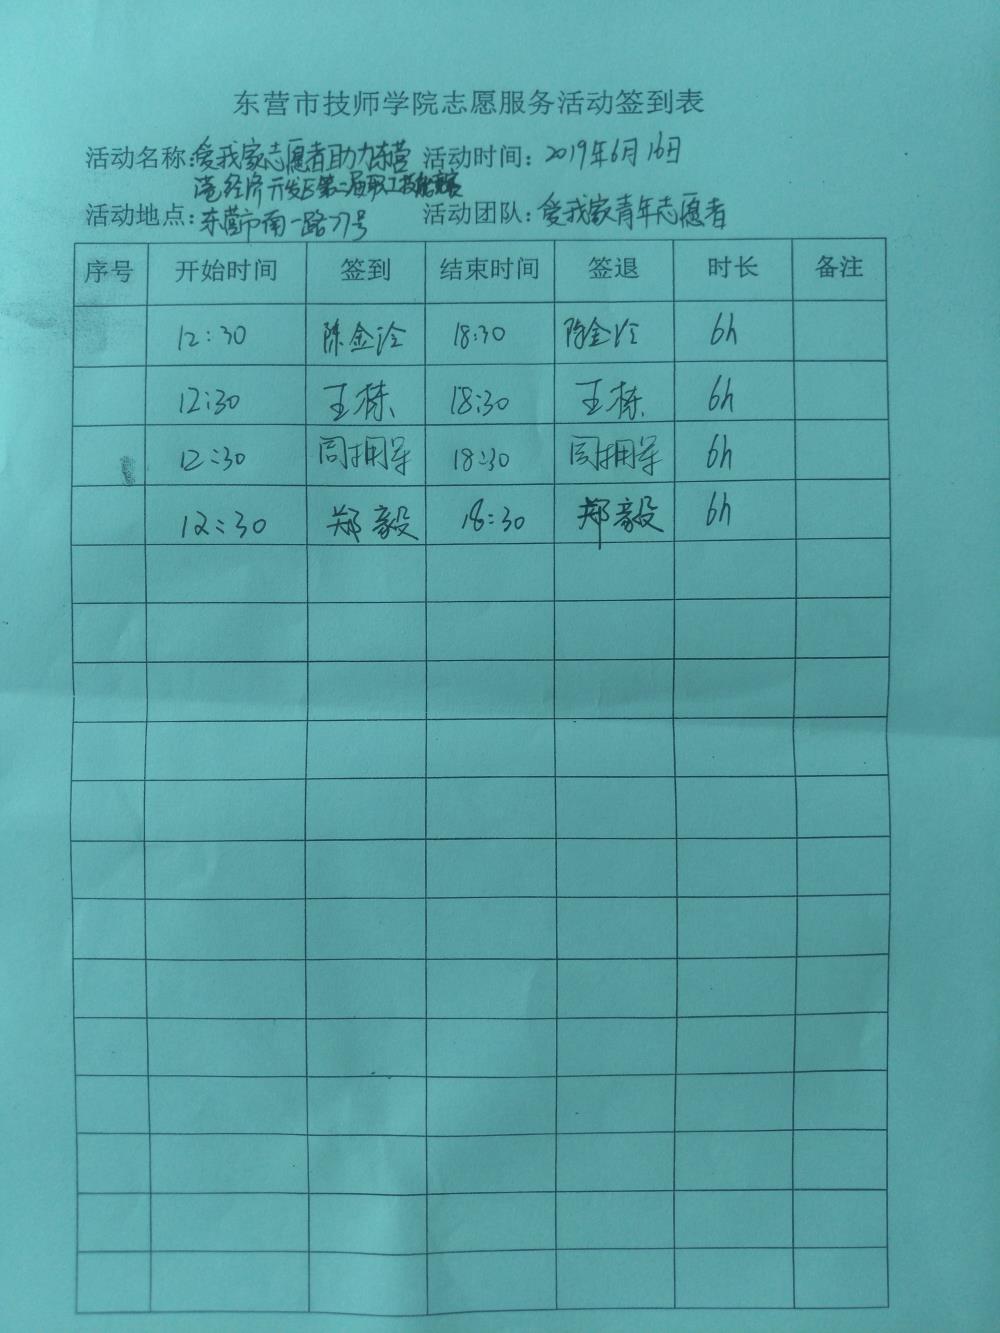 东营市技师学院志愿服务活动签到表
活动名称:爱我家志愿者助力东营 活动时间: 2019年6月16日
港经济开发区第二届职工技能竞赛
活动地点: 东营市南一路71号 活动团队: 爱我家青年志愿者
序号 开始时间 签到 结束时间 签退 时长 备注
12:30 陈金泠 18:30 陈金泠 6h
12:30 王栋 18:30 王栋 6h
12:30 18:30 6h
12:30 郑毅 18:30 郑毅 6h